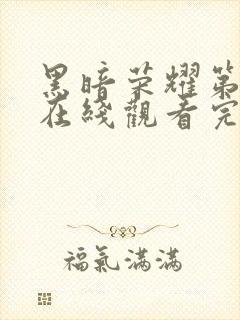 黑暗荣耀第
在綫觀看完
福氣滿滿